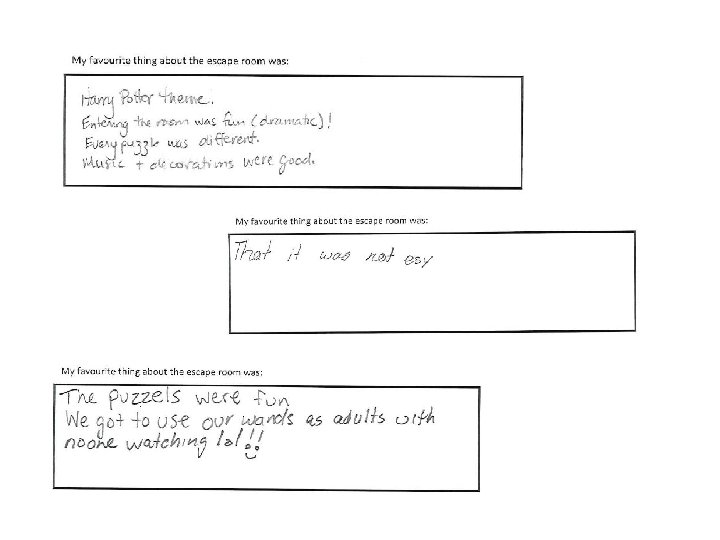 My favourite thing about the escape room was:
Harry Potter theme.
Entering the room was fun (dramatic)!
Every puzzle was different.
Music + decorations were good.
My favourite thing about the escape room was:
That it was not esy
My favourite thing about the escape room was:
The puzzels were fun
We got to use our wands as adults with
noone watching lol!!